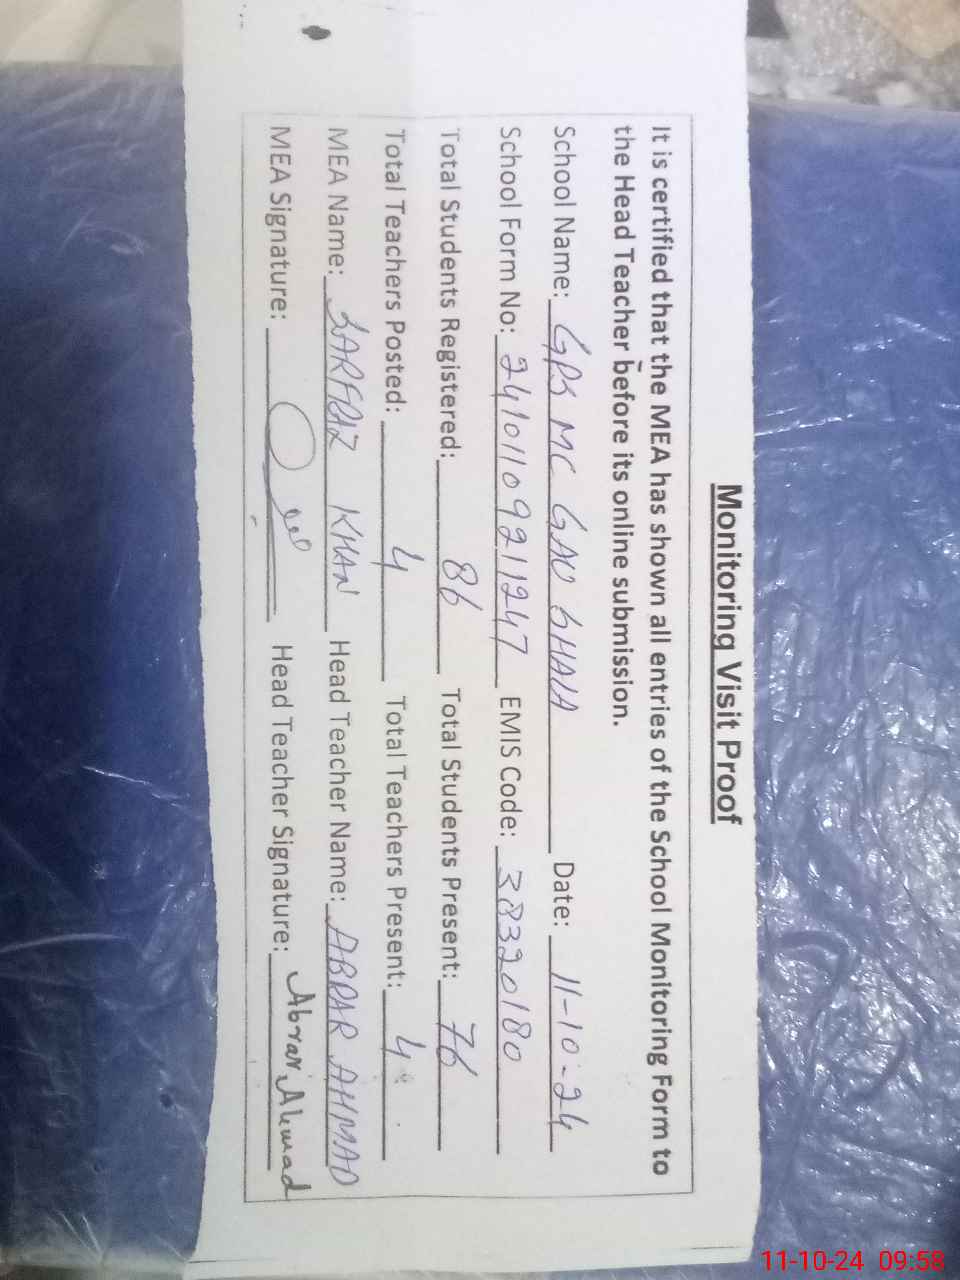 Monitoring Visit Proof
It is certified that the MEA has shown all entries of the School Monitoring Form to
the Head Teacher before its online submission.
School Name: GPS MC GAO SHALA Date: 11-10-24
School Form No: 2410110921247 EMIS Code: 38320180
Total Students Registered: 86 Total Students Present: 76
Total Teachers Posted: 4 Total Teachers Present: 4
MEA Name: SARFRAZ KHAN Head Teacher Name: ABRAR AHMAD
MEA Signature: Head Teacher Signature: Abrar Ahmad
11-10-24 09:58